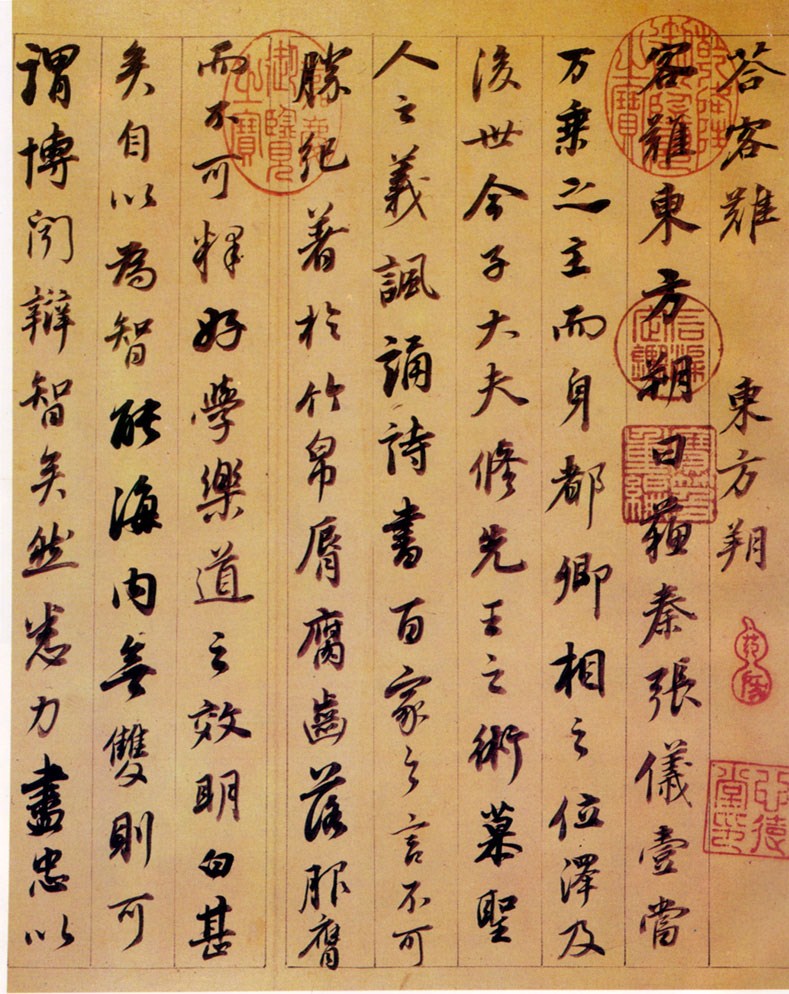 荅客難 東方朔
客難東方朔曰蘇秦張儀壹當
万乗之主而身都卿相之位澤及
後世今子大夫脩先王之術慕聖
人之義諷誦詩書百家之言不可
勝紀著於竹帛脣腐齒落服膺
而不可釋好學樂道之效明白甚
矣自以為智能海内無雙則可
謂博聞辯智矣然悉力盡忠以
乾隆御覽之寶
嘉慶御覽之寶